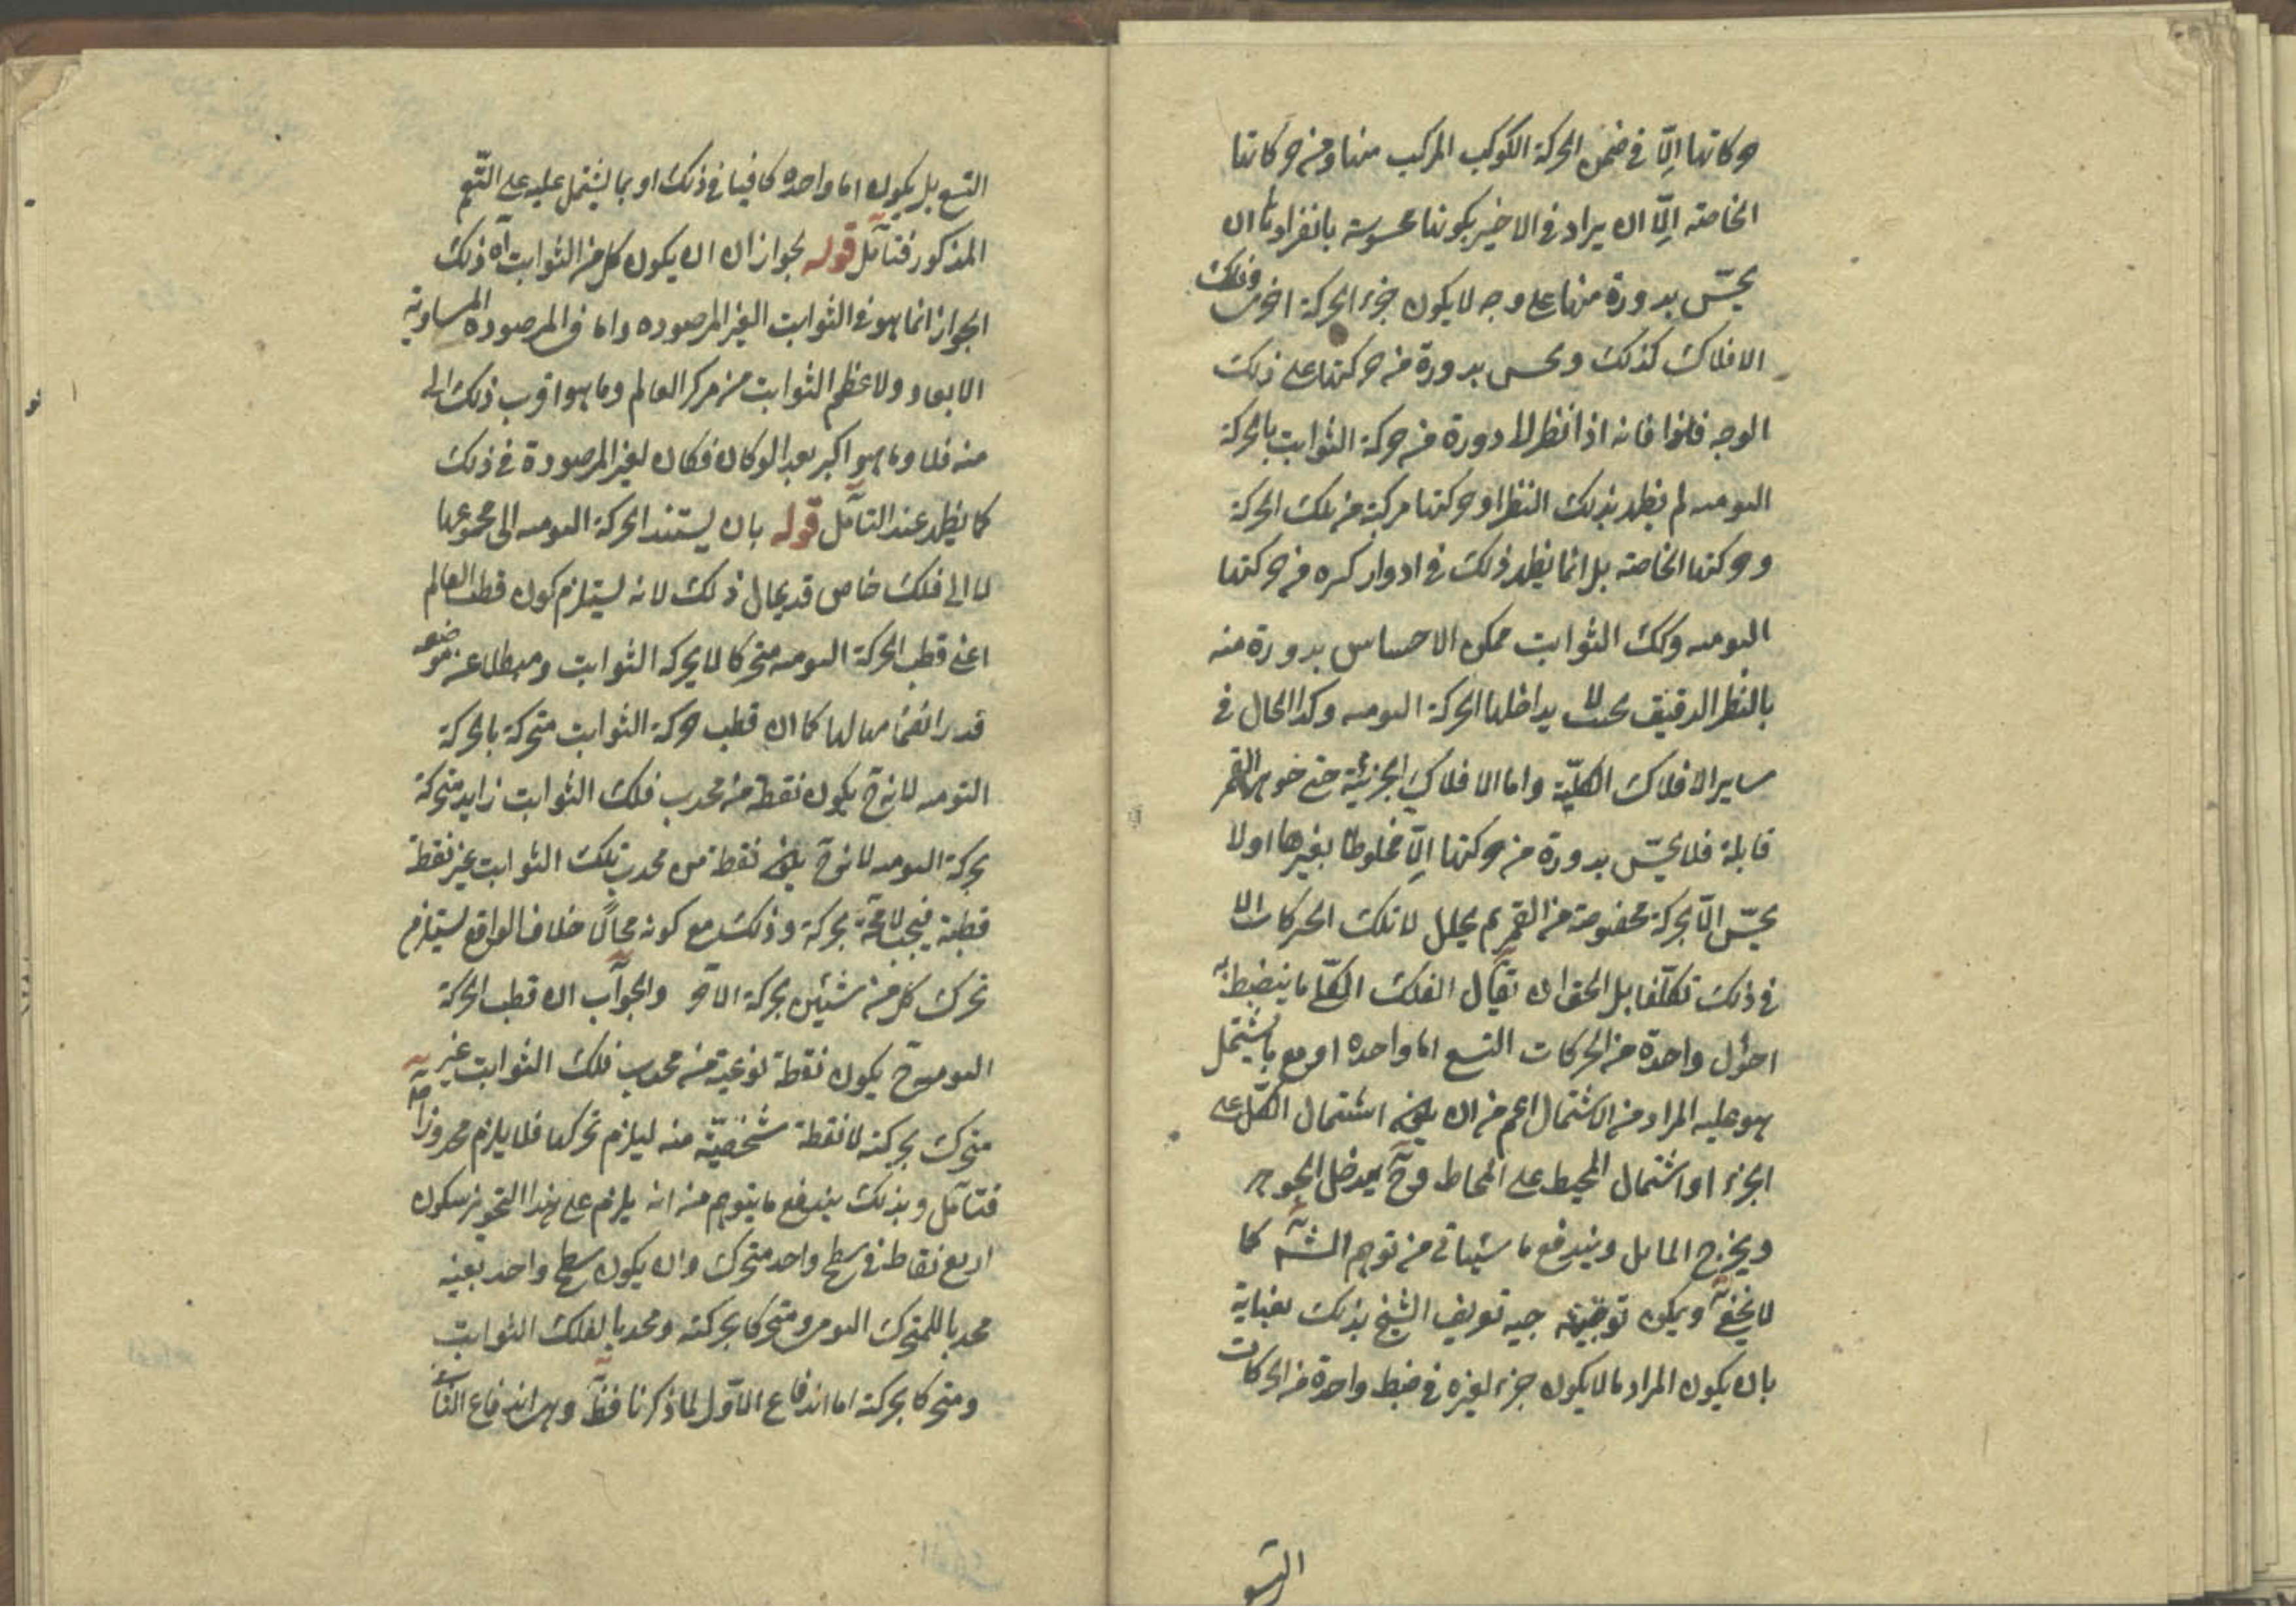 حركاتها إلّا في ضمن الحركة الكوكب المركب منها ومن حركاتها
الخاصة إلّا ان يراد في الاخير بكونها محسوسة بانفرادها ان
يحسّ بدورة منها على وجه لا يكون جزء الحركة اخرى وفلك
الافلاك كذلك ويحس بدورة من حركتها على ذلك
الوجه فانه اذا نظر الى دورة من حركة الثوابت بالحركة
اليوميه لم يظهر بذلك النظر ان حركتها مركبة من تلك الحركة
وحركتها الخاصة بل انما يظهر ذلك في ادوار كثيره من حركتها
اليوميه وكك الثوابت ممكن الاحساس بدورة منه
بالنظر الدقيق بحيث لا يداخلها الحركة اليوميه وكذا الحال في
ساير الافلاك الكليّة واما الافلاك الجزئيّة حتى جوزهر القمر
فلا يحسّ بدورة من حركتها إلّا مخلوطا بغيرها اولا
يحسّ الّا بحركة مخصوصة من القمر لان تلك الحركات الا
في ذلك تكلّفا بل الحق ان يقال الفلك الكلّي ما ينضبط به
احوال واحدة من الحركات التسع اما واحده او مع ما يشتمل
هو عليه المراد من الاشتمال اعم من ان يكون اشتمال الكلّ على
الجزء او اشتمال المحيط على المحاط وح يدخل الجوزهر
ويخرج المايل ويندفع ما سيأتي من توهم الشـ كما
لا يخفى ويمكن توجيه تعريف الشيخ بذلك بعناية
بان يكون المراد ما لا يكون جزء لغيره في ضبط واحدة من الحركات
التسع
التسع بل يكون اما واحده كافيا في ذلك او بما يشتمل عليه على التعميم
المذكور فتأمّل قوله بجواز ان يكون كل من الثوابت اه ذلك
الجواز انما هو في الثوابت الغير المرصوده واما في المرصوده المساوية
الابعاد ولاعظم الثوابت من مركز العالم وما هو اقرب ذلك الى
منه فلا وما هو اكبر بعدا لو كان فكان لغير المرصودة في ذلك
كما يظهر عند التأمل قوله بان يستند الحركة اليوميه الى مجموعها
لا الى فلك خاص قد يقال ذلك لانه يستلزم كون قطب العالم
اعني قطب الحركة اليوميه متحركا بحركة الثوابت ومبطلا عن موضعه
كما ان قطب حركة الثوابت متحركة بالحركة
اليوميه لانه ح يكون نقطة من محدب فلك الثوابت زايد متحركة
بحركة اليوميه لانه ح يكون نقطة من محدب فلك الثوابت غير نقطة
قطبية بحركة وذلك مع كونه محالًا خلاف الواقع يستلزم
تحرك كل من شيئين بحركة الاخر والجواب ان قطب الحركة
اليوميه ح يكون نقطة نوعية من محدب فلك الثوابت غير
متحرك بحركته لا نقطة شخصيّة منه ليلزم تحركها فلا يلزم محذور
فتأمّل وبذلك يندفع ما يتوهم منه انه يلزم على هذا التجويز سكون
اربع نقاط في سطح واحد متحرك وان يكون سطح واحد بعينه
محدبا للمتحرك اليومي ومتحركا بحركته ومحدبا لفلك الثوابت
ومتحركا بحركته اما اندفاع الاوّل لما ذكرنا فظ واما اندفاع الثاني